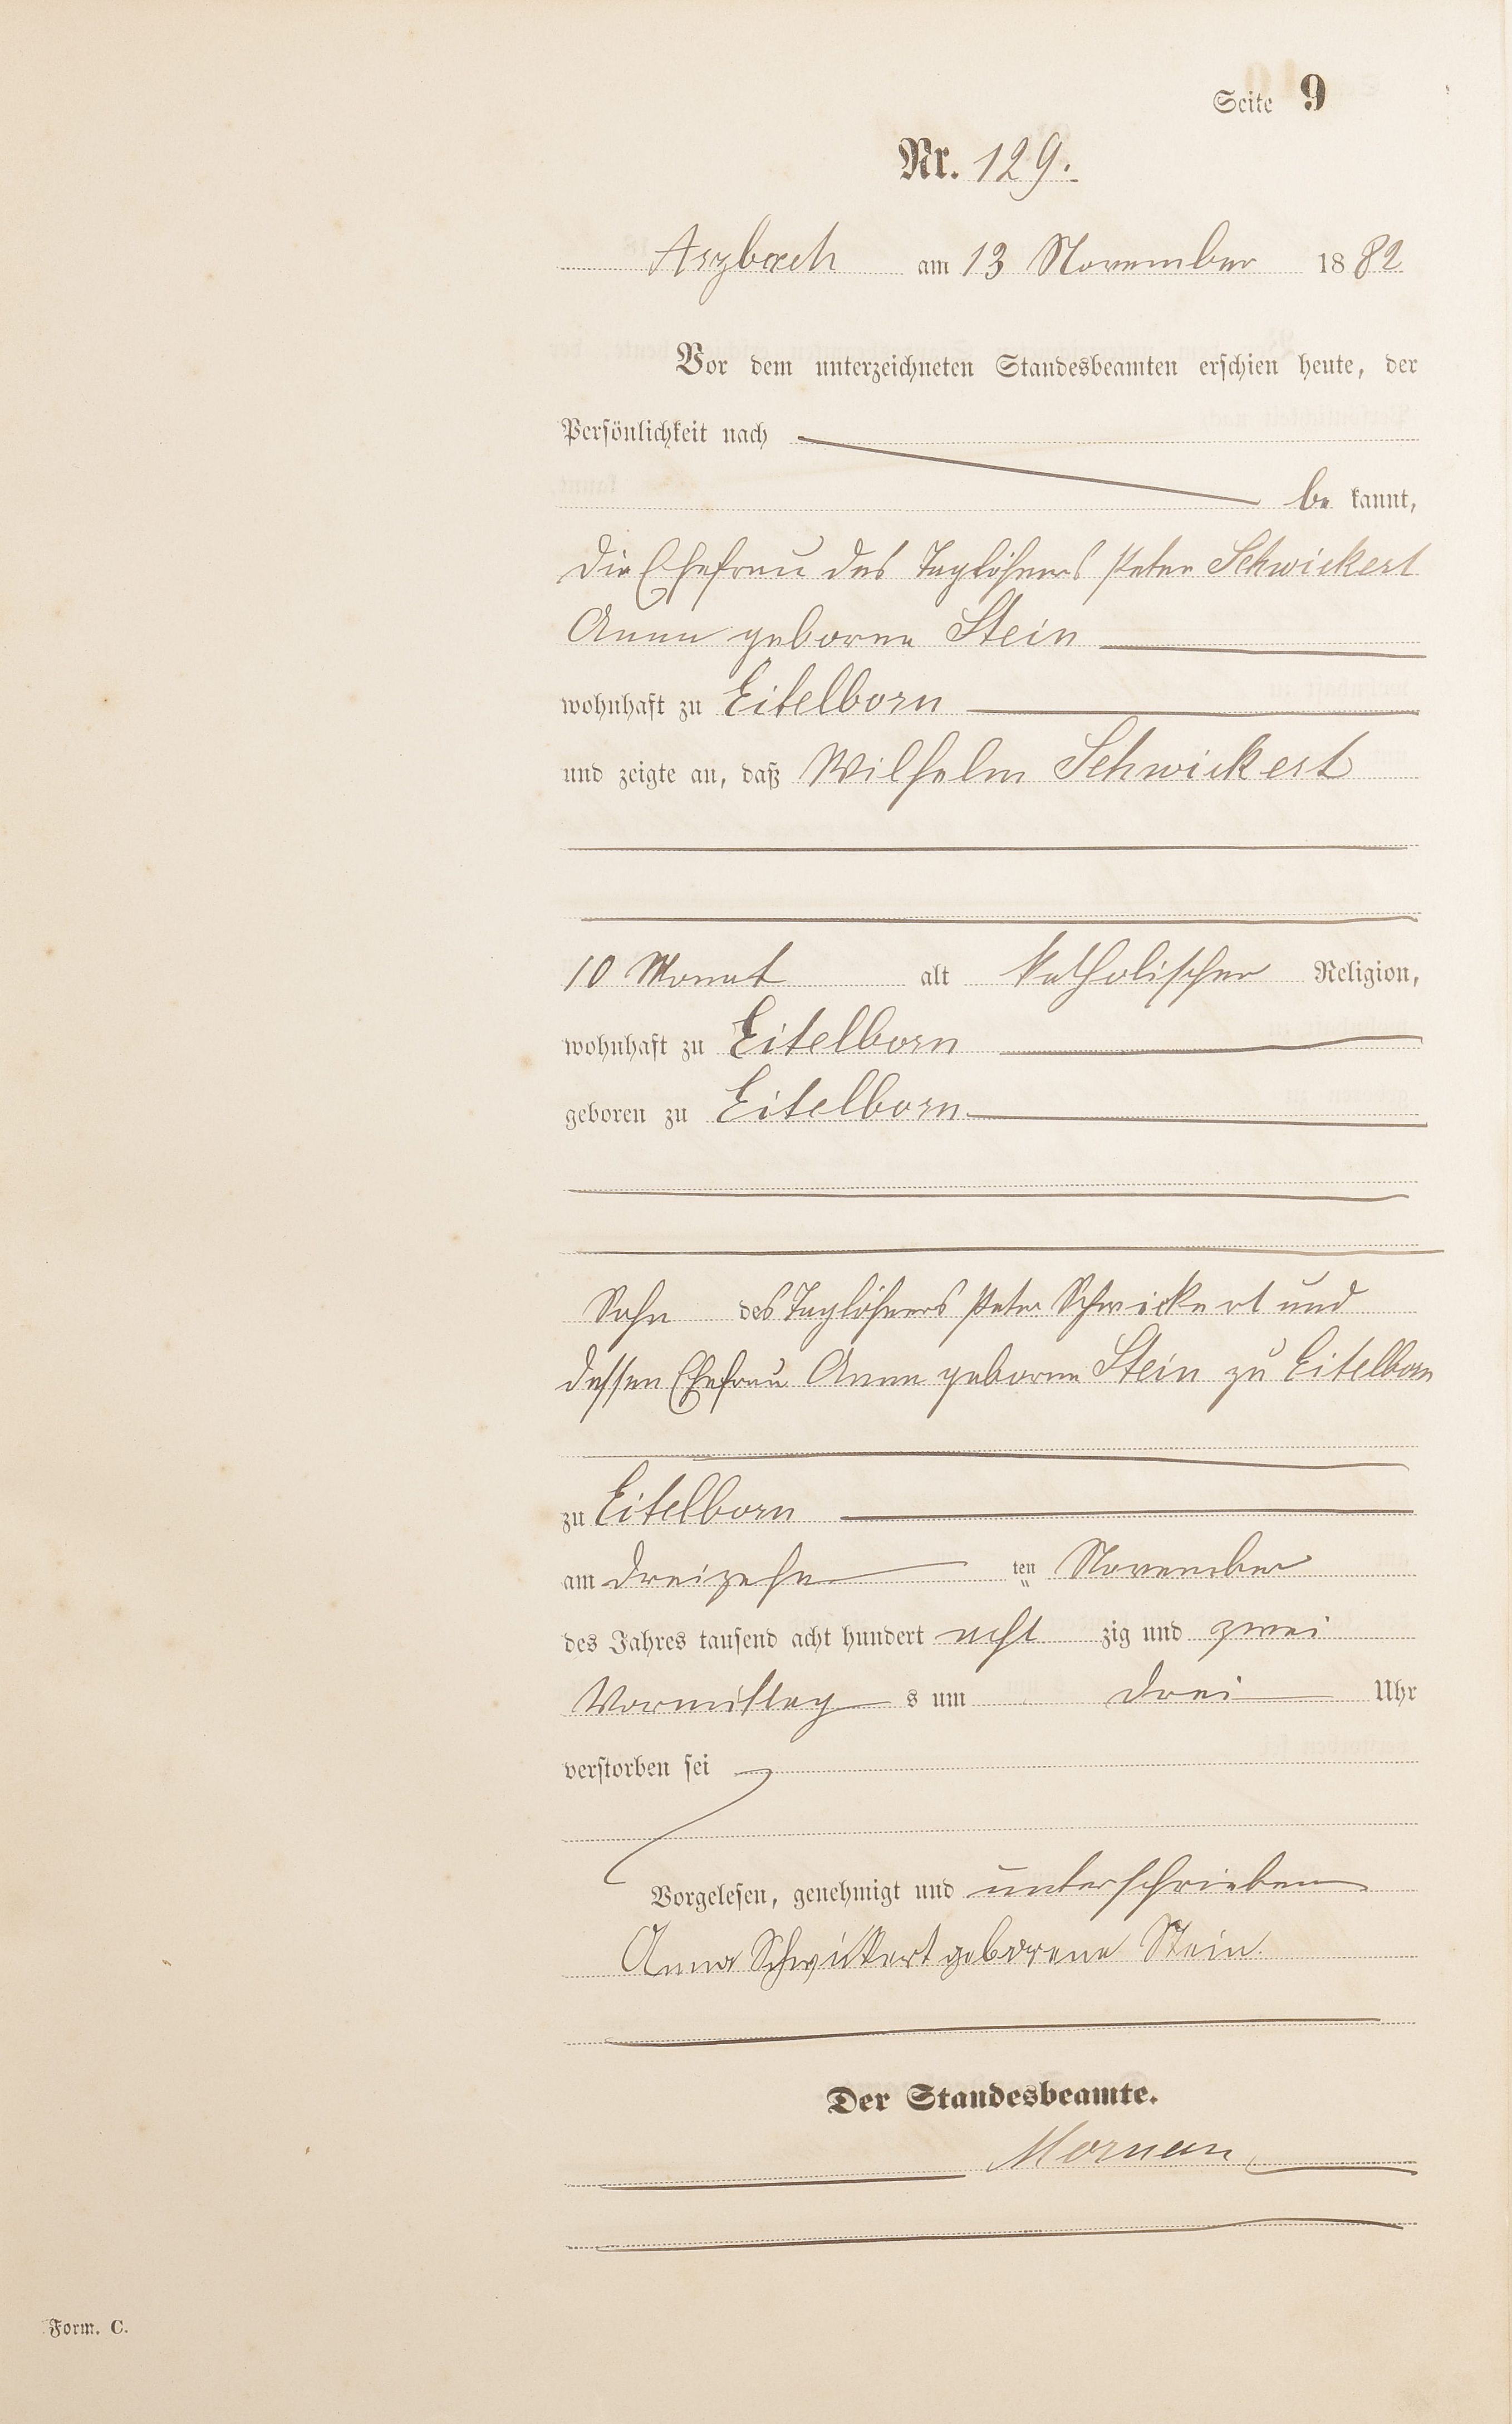 Seite 9
Nr. 129.
Arzbach am 13 November 1882
Vor dem unterzeichneten Standesbeamten erschien heute, der
Persönlichkeit nach
be kannt,
die Ehefrau des Taglöhners Peter Schwickert
Anna geborne Stein
wohnhaft zu Eitelborn
und zeigte an, daß Wilhelm Schwickert
10 Monat alt katholischer Religion,
wohnhaft zu Eitelborn
geboren zu Eitelborn
Sohn des Taglöhners Peter Schwickert und
dessen Ehefrau Anna geborne Stein zu Eitelborn
zu Eitelborn
am dreizehn ten November
des Jahres tausend acht hundert acht zig und zwei
Vormittag s um drei Uhr
verstorben sei
Vorgelesen, genehmigt und unterschrieben
Anna Schwickert geborene Stein.
Der Standesbeamte.
Form. C.